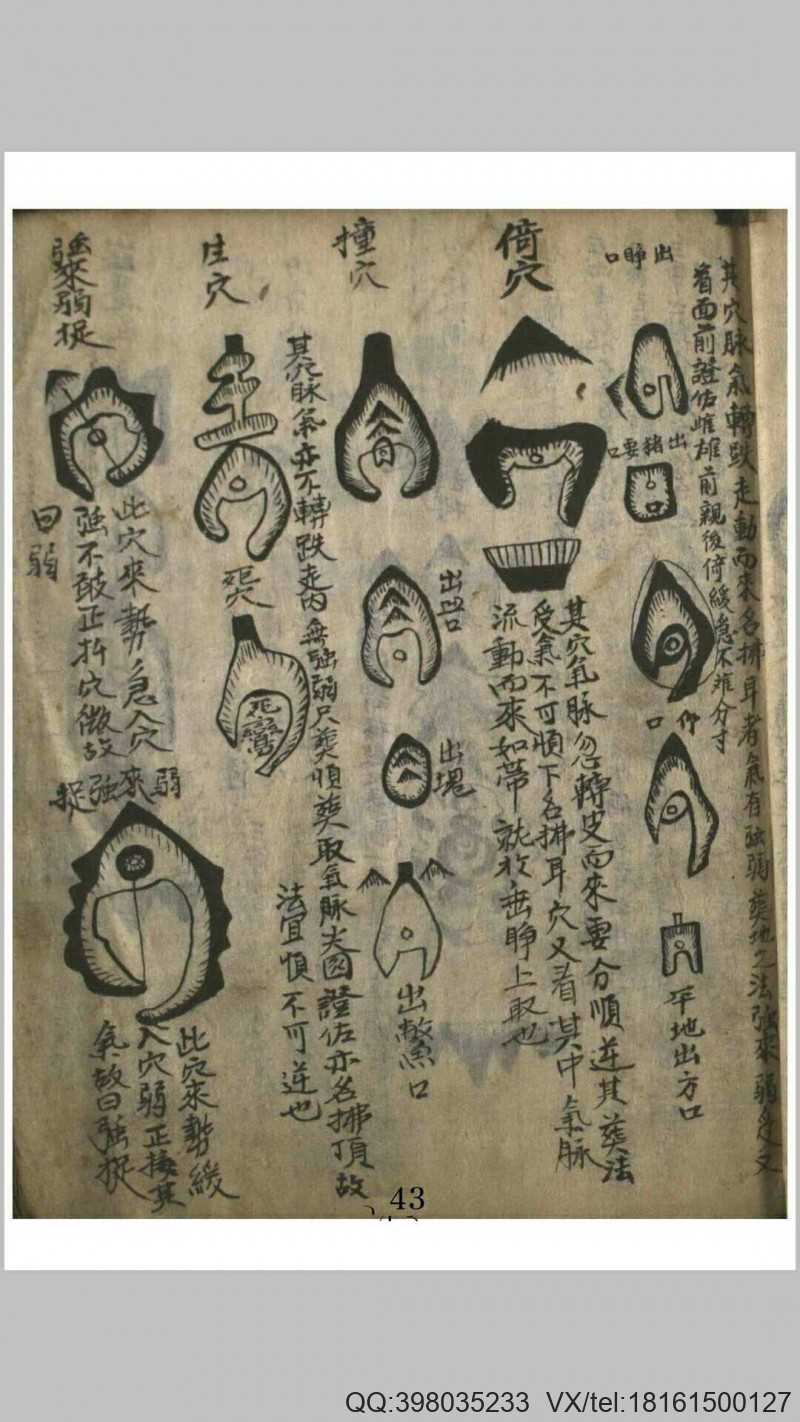 其穴脉氣轉跌走動而來名拂耳者氣有強弱葬地之法強來弱
看面前證佐雌雄前親後倚緩急不離分寸
出睜口
出豬要口
仰口
平地出方口
倚穴
其穴氣脉忽轉皮而來要分順逆其葬法
受氣不可順下名拂耳穴又看其中氣脉
流動而來如帶就於垂睁上取也
撞穴
出凹口
出塊
出鱉口
其穴脉氣亦不轉跌走內無強弱尺葬順葬取氣脉大圓證佐亦名拂頂故
法宜順不可逆也
生穴
死穴
死
強來弱捉
此穴來勢急入穴
強不敢正扦穴微故
曰弱
弱來強捉
此穴來勢緩
入穴弱正接其
氣故曰強捉
43
QQ:398035233 VX/tel:18161500127